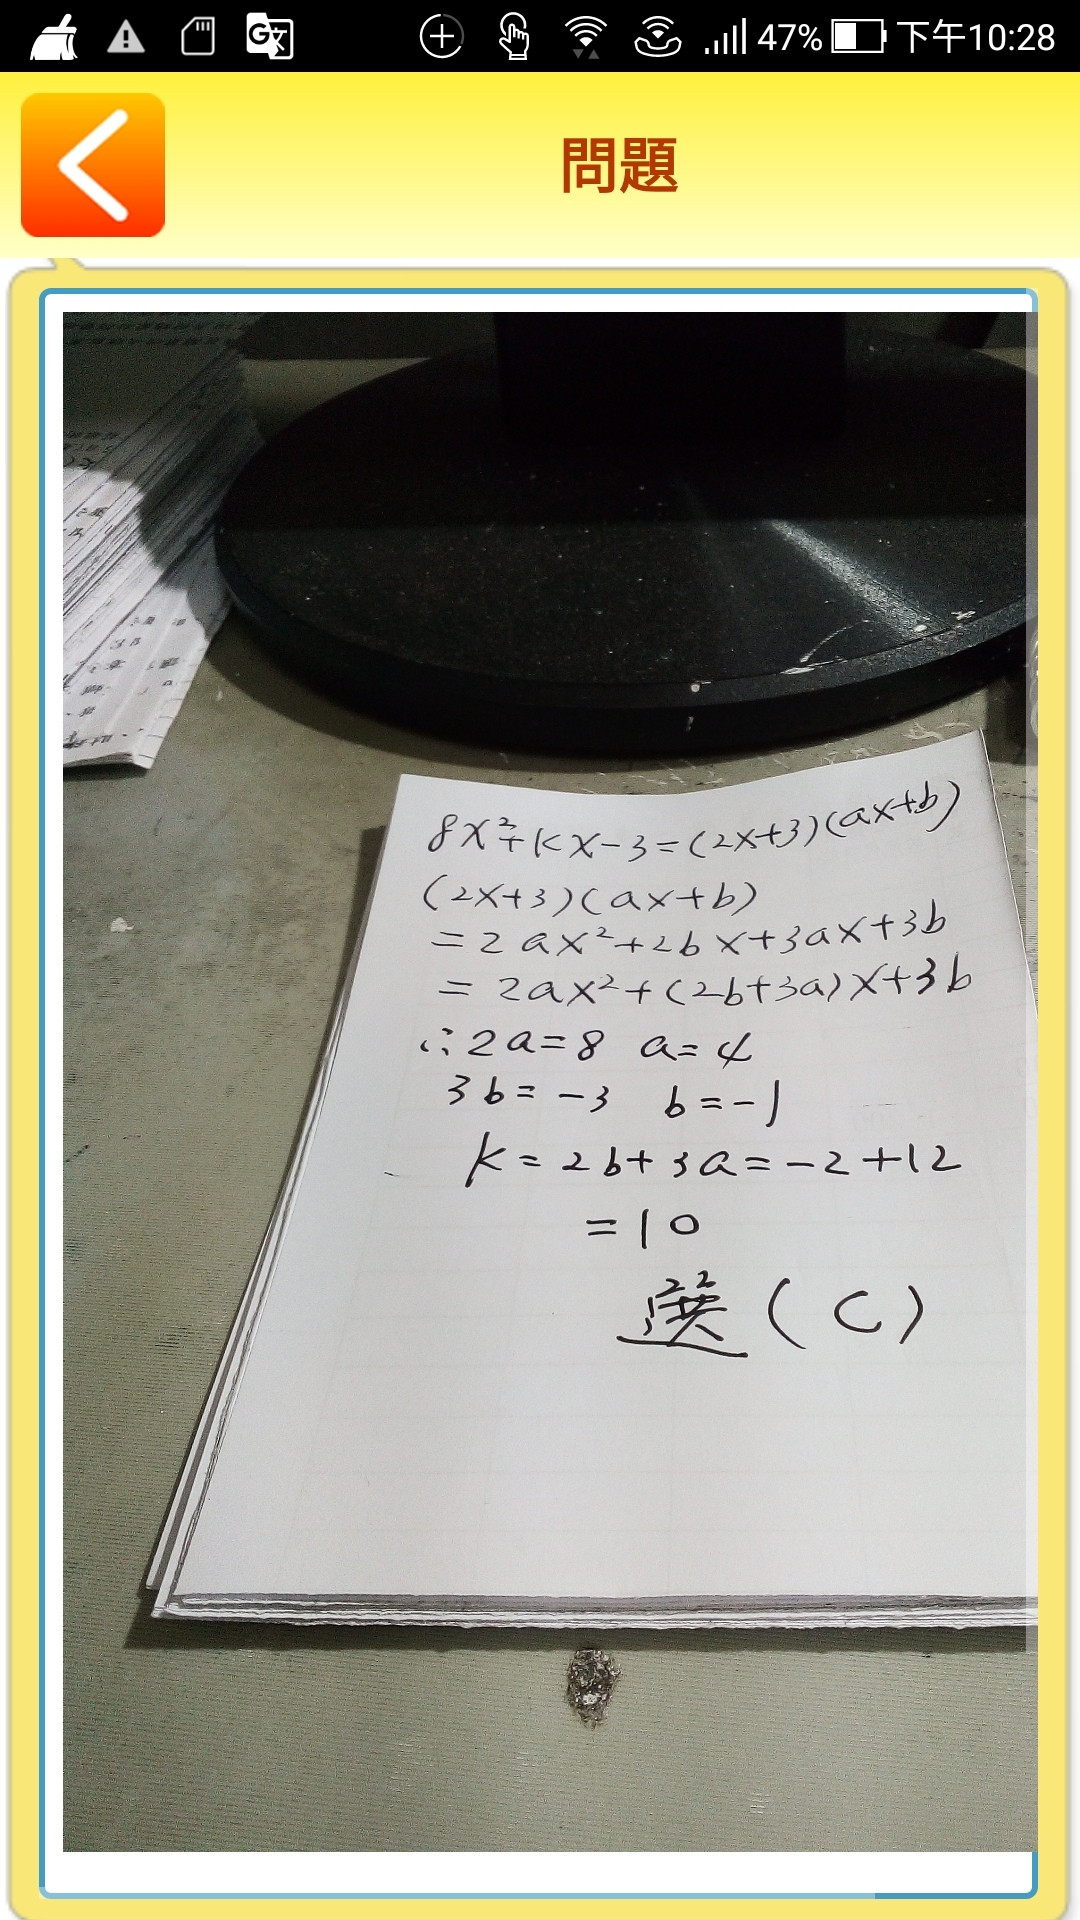 47% 下午10:28
問題
8x²+kx-3=(2x+3)(ax+b)
(2x+3)(ax+b)
=2ax²+2bx+3ax+3b
=2ax²+(2b+3a)x+3b
∴2a=8 a=4
3b=-3 b=-1
k=2b+3a=-2+12
=10
選(C)